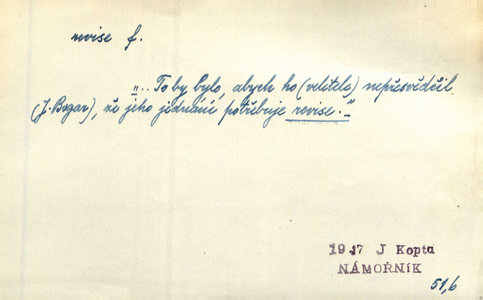 revise f.
„.. To by bylo, abych ho (velitele) nepřesvědčil
(J. Bogar), že jeho jednání potřebuje revise."
19.17 J Kopta
NÁMOŘNÍK
51,6